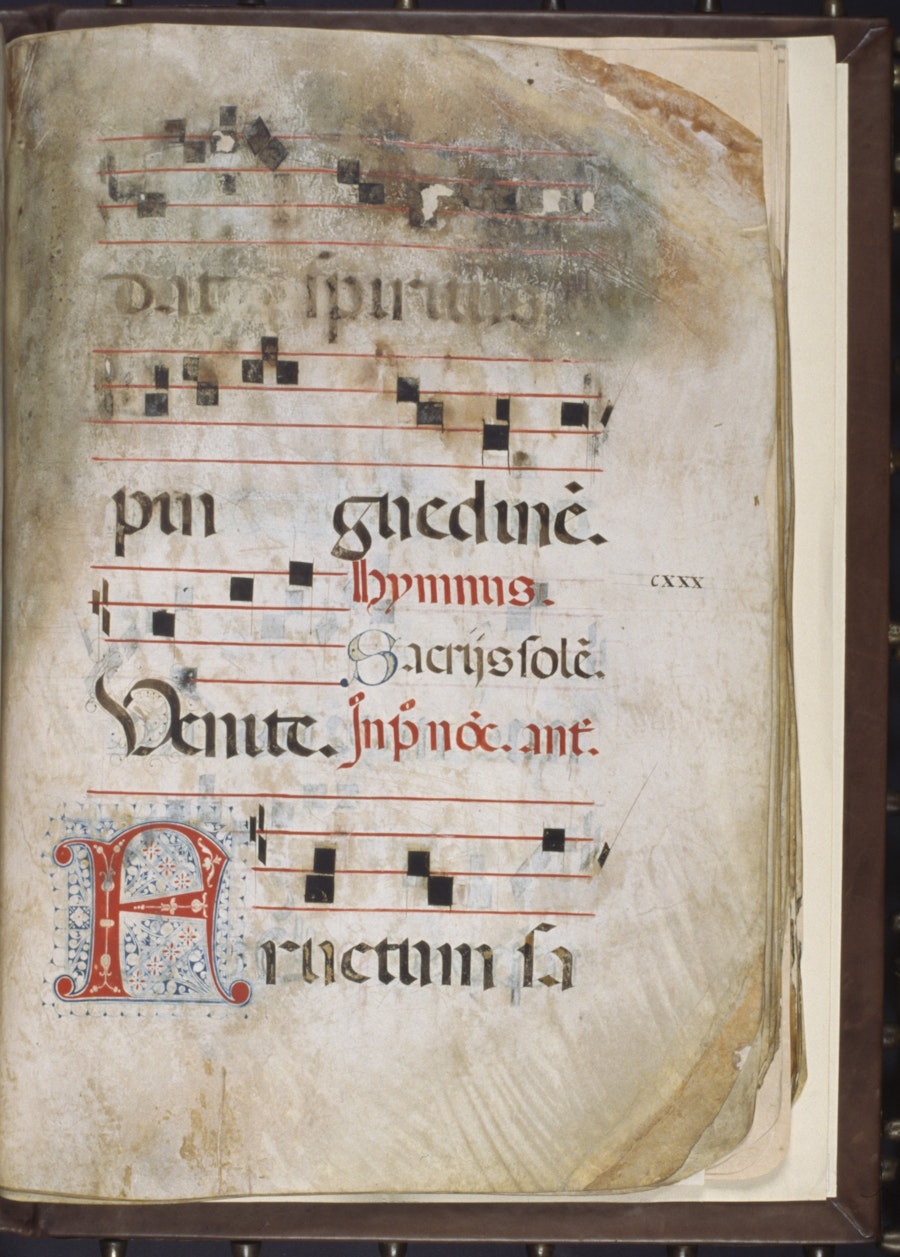 dat spiritus
pin guedinē.
hymnus.
cxxx
Sacrijs solē.
Venite. In p̄ noc̄. ant̄.
Fructum sa